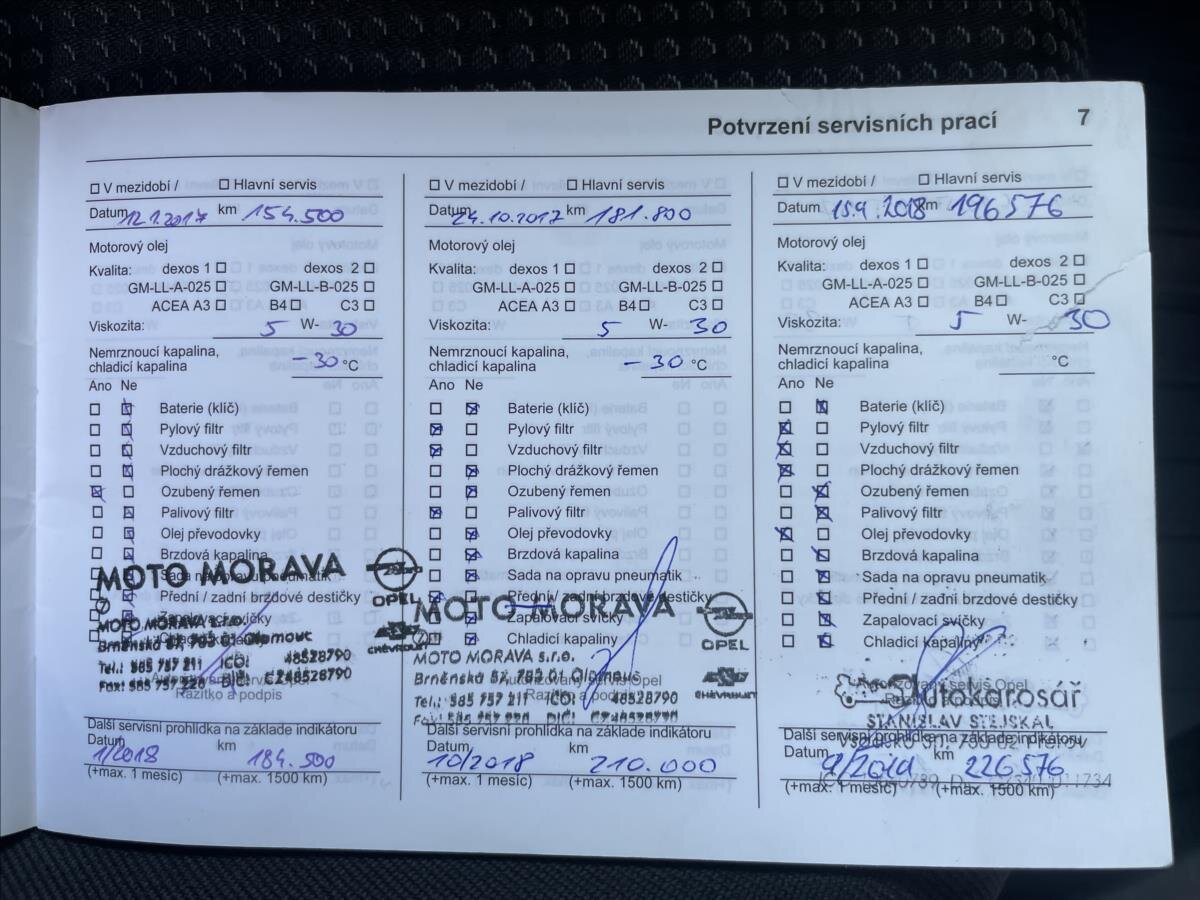 Potvrzení servisních prací 7
V mezidobí / Hlavní servis
Datum 12.1.2017 km 154.500
Motorový olej
Kvalita: dexos 1 dexos 2
GM-LL-A-025 GM-LL-B-025
ACEA A3 B4 C3
Viskozita: 5 W- 30
Nemrznoucí kapalina,
chladicí kapalina -30 °C
Ano Ne
Baterie (klíč)
Pylový filtr
Vzduchový filtr
Plochý drážkový řemen
Ozubený řemen
Palivový filtr
Olej převodovky
Brzdová kapalina
Sada na opravu pneumatik
Přední / zadní brzdové destičky
Zapalovací svíčky
MOTO MORAVA
OPEL
MOTO MORAVA s.r.o.
Brněnská 57, 783 01 Olomouc
CHEVROLET
Tel.: 585 757 211 IČO: 48528790
Fax: 585 757 220 DIČ: CZ48528790
Razítko a podpis
Další servisní prohlídka na základě indikátoru
Datum 1/2018 km 184.500
(+max. 1 měsíc) (+max. 1500 km)
V mezidobí / Hlavní servis
Datum 24.10.2017 km 181.800
Motorový olej
Kvalita: dexos 1 dexos 2
GM-LL-A-025 GM-LL-B-025
ACEA A3 B4 C3
Viskozita: 5 W- 30
Nemrznoucí kapalina,
chladicí kapalina -30 °C
Ano Ne
Baterie (klíč)
Pylový filtr
Vzduchový filtr
Plochý drážkový řemen
Ozubený řemen
Palivový filtr
Olej převodovky
Brzdová kapalina
Sada na opravu pneumatik
Přední / zadní brzdové destičky
MOTO MORAVA
Zapalovací svíčky
Chladicí kapaliny
OPEL
MOTO MORAVA s.r.o.
Brněnská 57, 783 01 Olomouc
Autorizovaný servis Opel
CHEVROLET
Tel.: 585 757 211 IČO: 48528790
Razítko a podpis
Fax: 585 757 220 DIČ: CZ48528790
Další servisní prohlídka na základě indikátoru
Datum 10/2018 km 210.000
(+max. 1 měsíc) (+max. 1500 km)
V mezidobí / Hlavní servis
Datum 15.9.2018 km 196576
Motorový olej
Kvalita: dexos 1 dexos 2
GM-LL-A-025 GM-LL-B-025
ACEA A3 B4 C3
Viskozita: 5 W- 30
Nemrznoucí kapalina,
chladicí kapalina °C
Ano Ne
Baterie (klíč)
Pylový filtr
Vzduchový filtr
Plochý drážkový řemen
Ozubený řemen
Palivový filtr
Olej převodovky
Brzdová kapalina
Sada na opravu pneumatik
Přední / zadní brzdové destičky
Zapalovací svíčky
Chladicí kapaliny
Autorizovaný servis Opel
Autokarosář
STANISLAV STEJSKAL
Další servisní prohlídka na základě indikátoru
Datum 9/2019 km 226576
(+max. 1 měsíc) (+max. 1500 km)